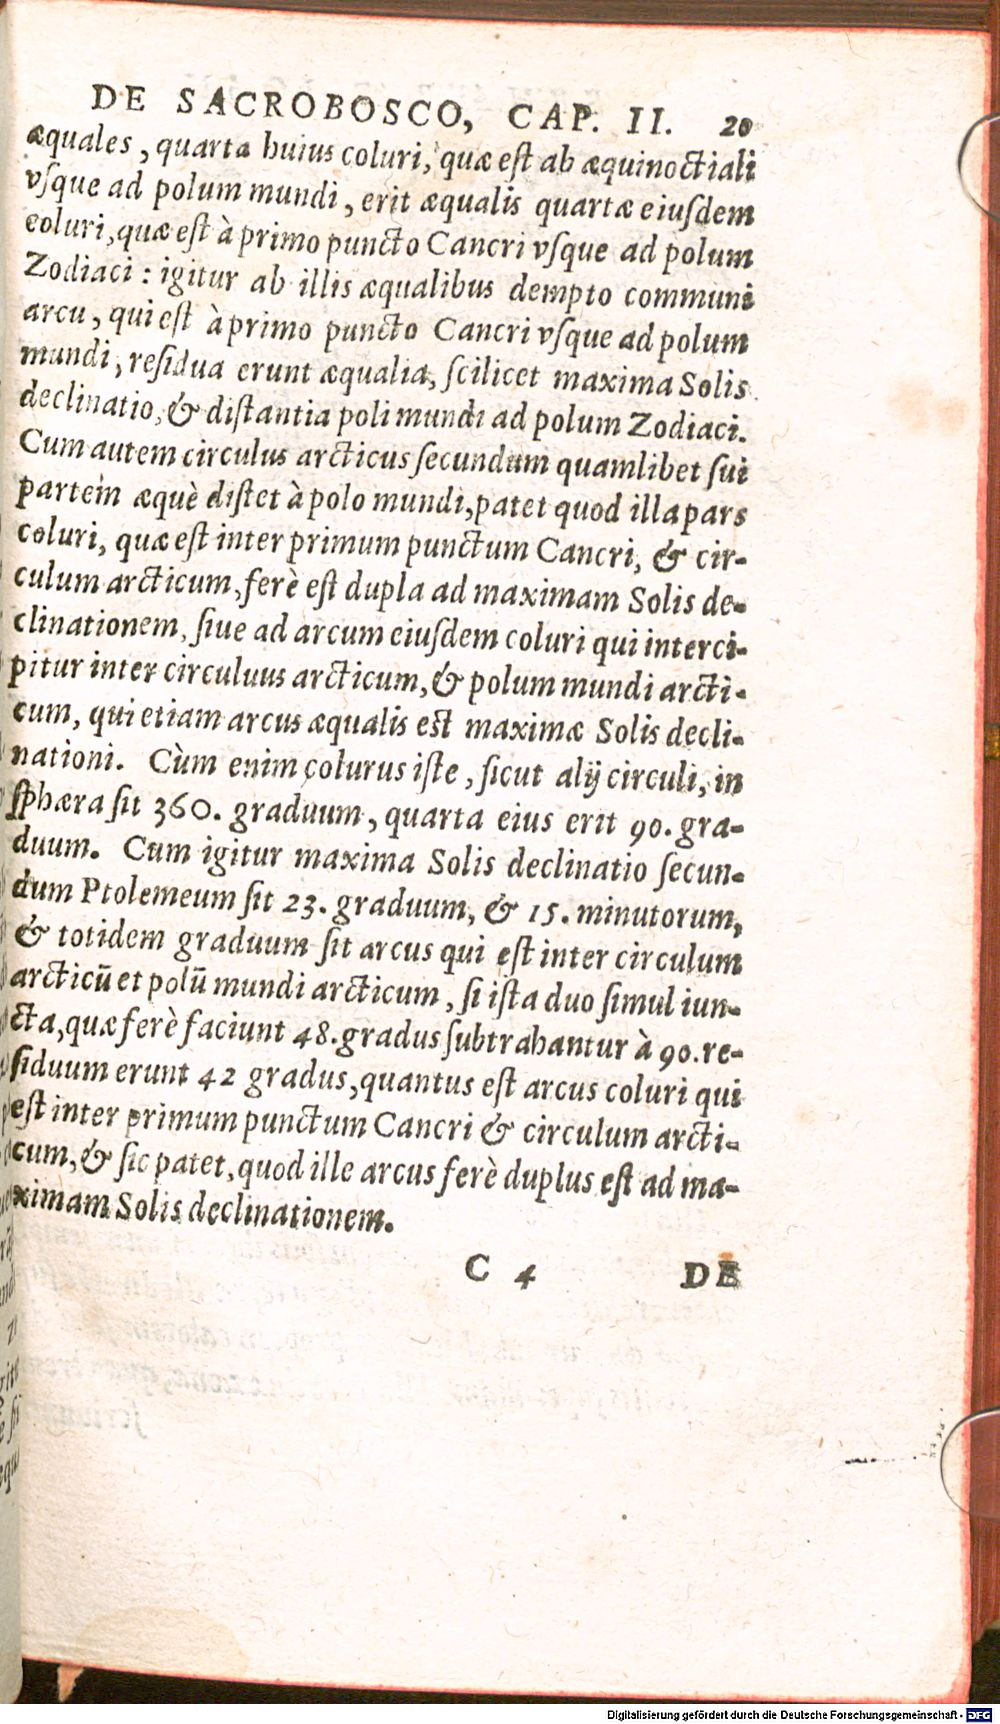 DE SACROBOSCO, CAP. II. 20
æquales, quarta huius coluri, quæ eſt ab æquinoctiali
vſque ad polum mundi, erit æqualis quartæ eiuſdem
coluri, quæ eſt à primo puncto Cancri vſque ad polum
Zodiaci: igitur ab illis æqualibus dempto communi
arcu, qui eſt à primo puncto Cancri vſque ad polum
mundi, reſidua erunt æqualia, ſcilicet maxima Solis
declinatio, & diſtantia poli mundi ad polum Zodiaci.
Cum autem circulus arcticus ſecundum quamlibet ſui
partem æquè diſtet à polo mundi, patet quod illa pars
coluri, quæ eſt inter primum punctum Cancri, & cir-
culum arcticum, ferè eſt dupla ad maximam Solis de-
clinationem, ſiue ad arcum eiuſdem coluri qui interci-
pitur inter circuluus arcticum, & polum mundi arcti-
cum, qui etiam arcus æqualis est maximæ Solis decli-
nationi. Cùm enim colurus iſte, ſicut alij circuli, in
ſphæra ſit 360. graduum, quarta eius erit 90. gra-
duum. Cum igitur maxima Solis declinatio ſecun-
dum Ptolemeum ſit 23. graduum, & 15. minutorum,
& totidem graduum ſit arcus qui eſt inter circulum
arcticū et polū mundi arcticum, ſi iſta duo ſimul iun-
cta, quæ ferè faciunt 48. gradus ſubtrahantur à 90. re-
ſiduum erunt 42 gradus, quantus eſt arcus coluri qui
eſt inter primum punctum Cancri & circulum arcti-
cum, & ſic patet, quod ille arcus ferè duplus eſt ad ma-
ximam Solis declinationem.
C 4 DE
Digitalisierung gefördert durch die Deutsche Forschungsgemeinschaft - DFG